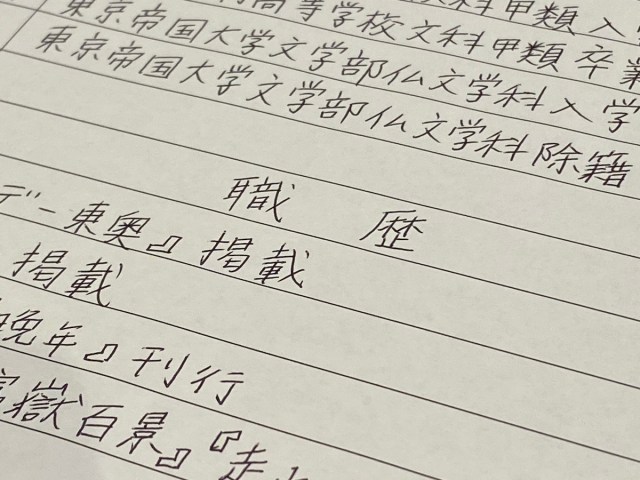 高等学校文科甲類卒業
東京帝国大学文学部仏文学科入学
東京帝国大学文学部仏文学科除籍
職歴
デー東奥』掲載
掲載
晩年』刊行
嶽百景』『走